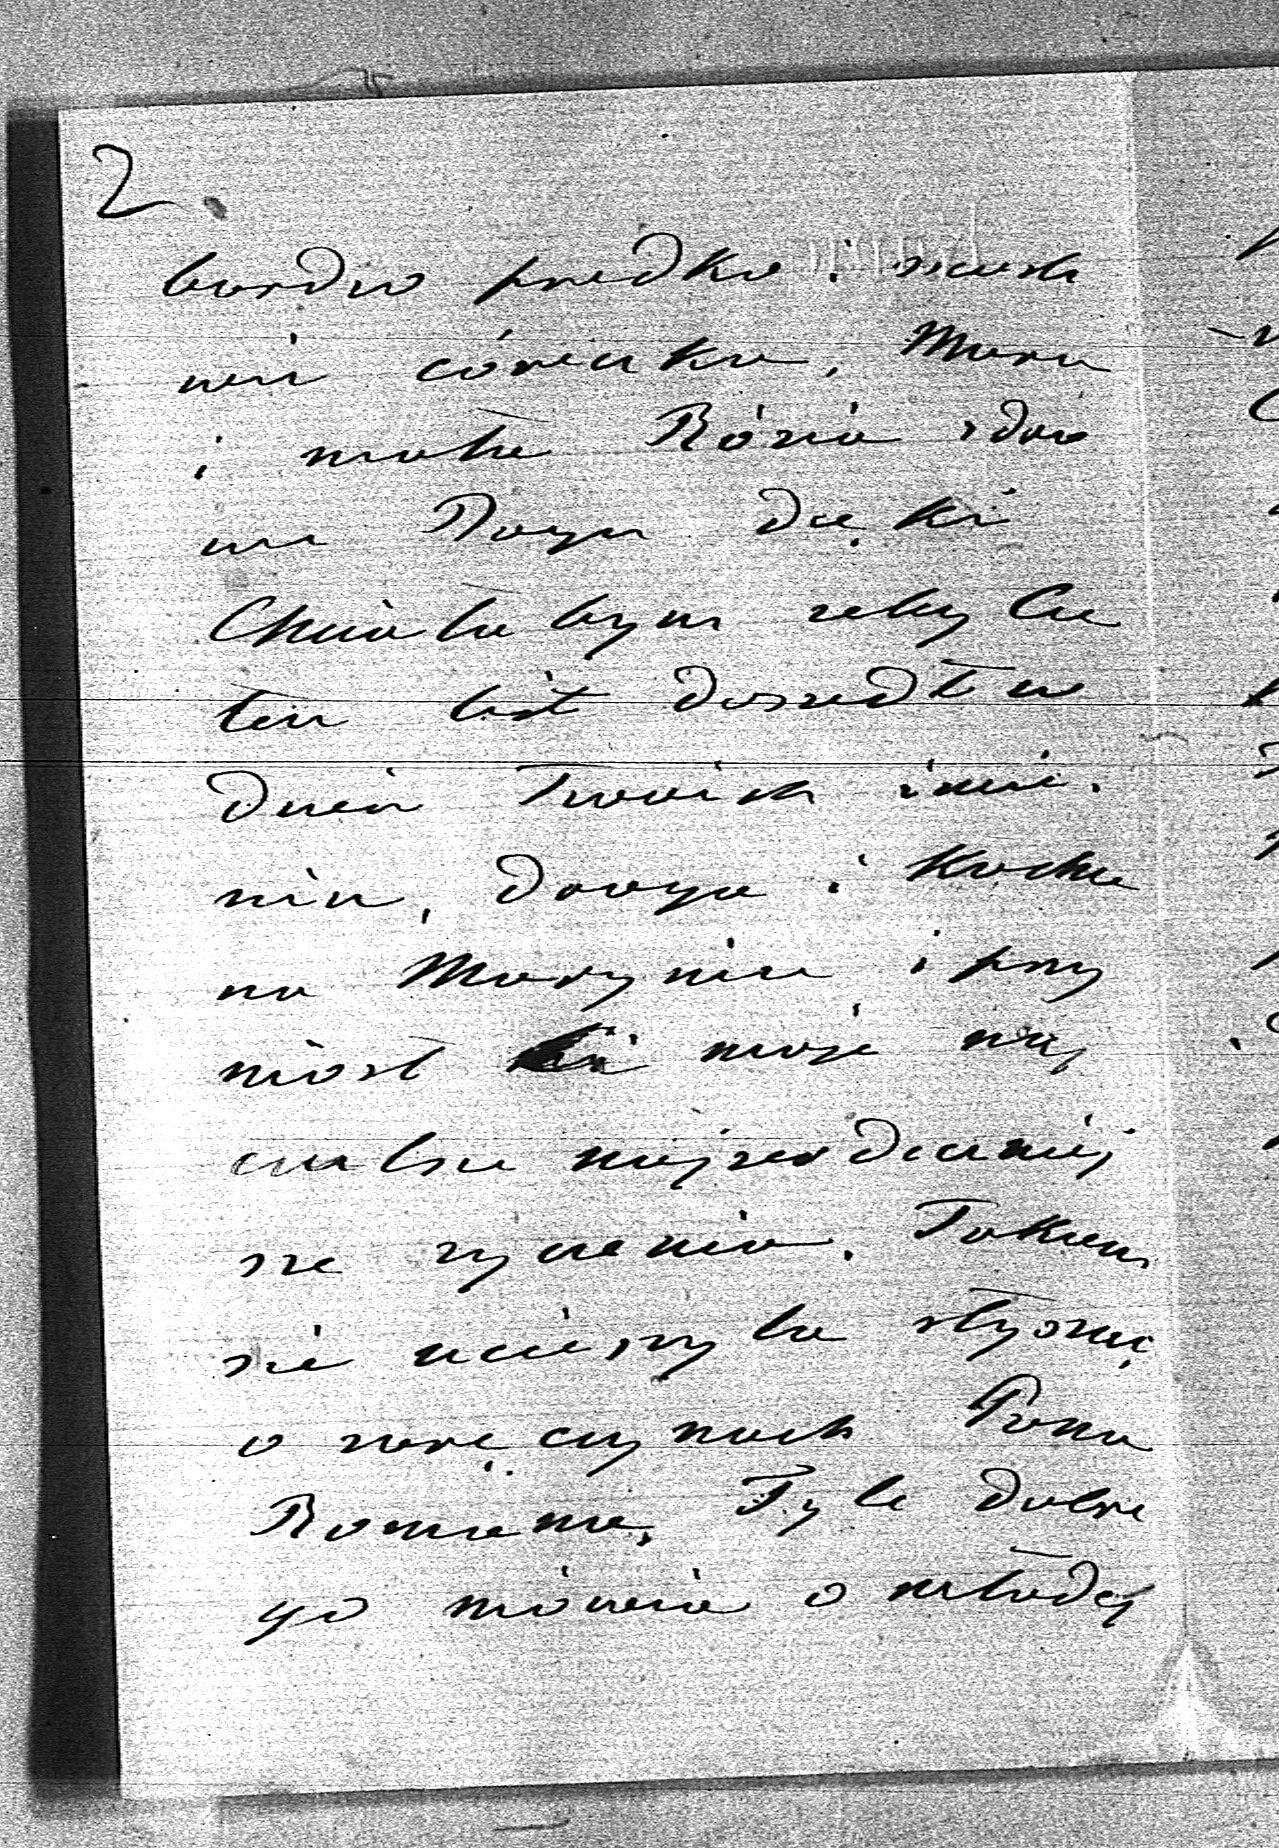 2.
bardzo prędko i szczęśli
wie córeczka, Mama
i mała Rózia zdro
we Bogu dzięki
Chciałabym żeby Cie
ten list doszedł w
dzień Twoich imie-
nin, droga i kocha
na Maryniu i przy
niósł Ci moje naj
czulsze najserdeczniej
sze życzenia. Takem
się ucieszyła słysząc
o zaręczynach Pana
Romana. Tyle dobre
go mówią o młodej